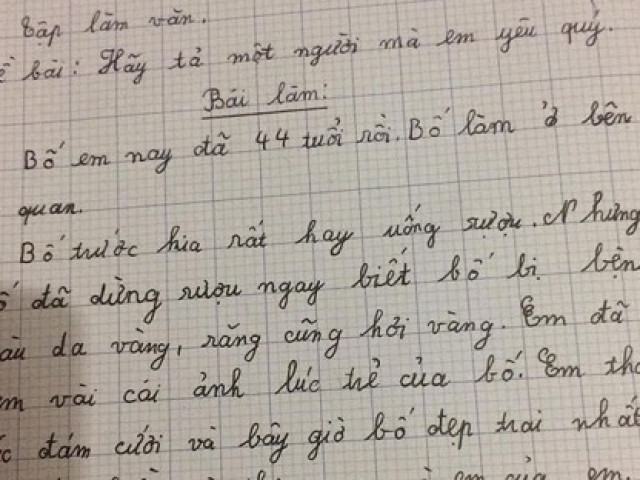 Tập làm văn.
bài: Hãy tả một người mà em yêu quý.
Bài làm:
Bố em nay đã 44 tuổi rồi. Bố làm ở bên
quan.
Bố trước kia rất hay uống rượu. Nhưng
đã dừng rượu ngay biết bố bị bện
da vàng, răng cũng hơi vàng. Em đã
vài cái ảnh lúc trẻ của bố. Em
đám cưới và bây giờ bố đẹp trai nhất
em của em.